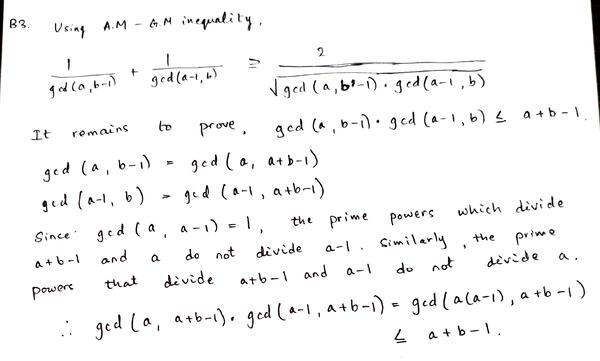 B3. Using A.M - G.M inequality,
1/gcd(a, b-1) + 1/gcd(a-1, b) ≥ 2/√(gcd(a, b-1) · gcd(a-1, b))
It remains to prove, gcd(a, b-1) · gcd(a-1, b) ≤ a+b-1.
gcd(a, b-1) = gcd(a, a+b-1)
gcd(a-1, b) = gcd(a-1, a+b-1)
Since gcd(a, a-1) = 1, the prime powers which divide
a+b-1 and a do not divide a-1. Similarly, the prime
powers that divide a+b-1 and a-1 do not divide a.
∴ gcd(a, a+b-1) · gcd(a-1, a+b-1) = gcd(a(a-1), a+b-1)
≤ a+b-1.